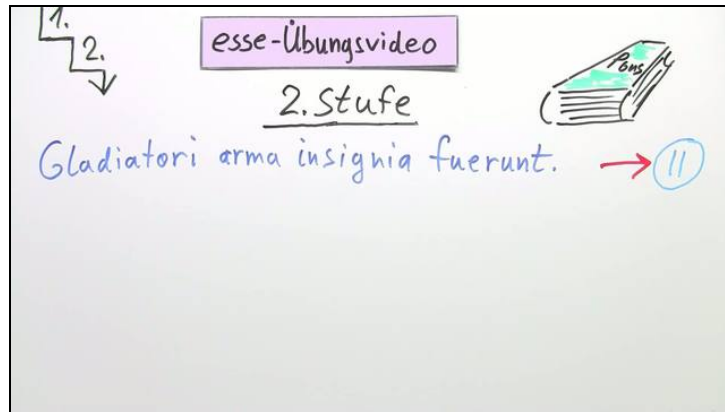 1.
2.
esse-Übungsvideo
2. Stufe
Pons
Gladiatori arma insignia fuerunt. → 11